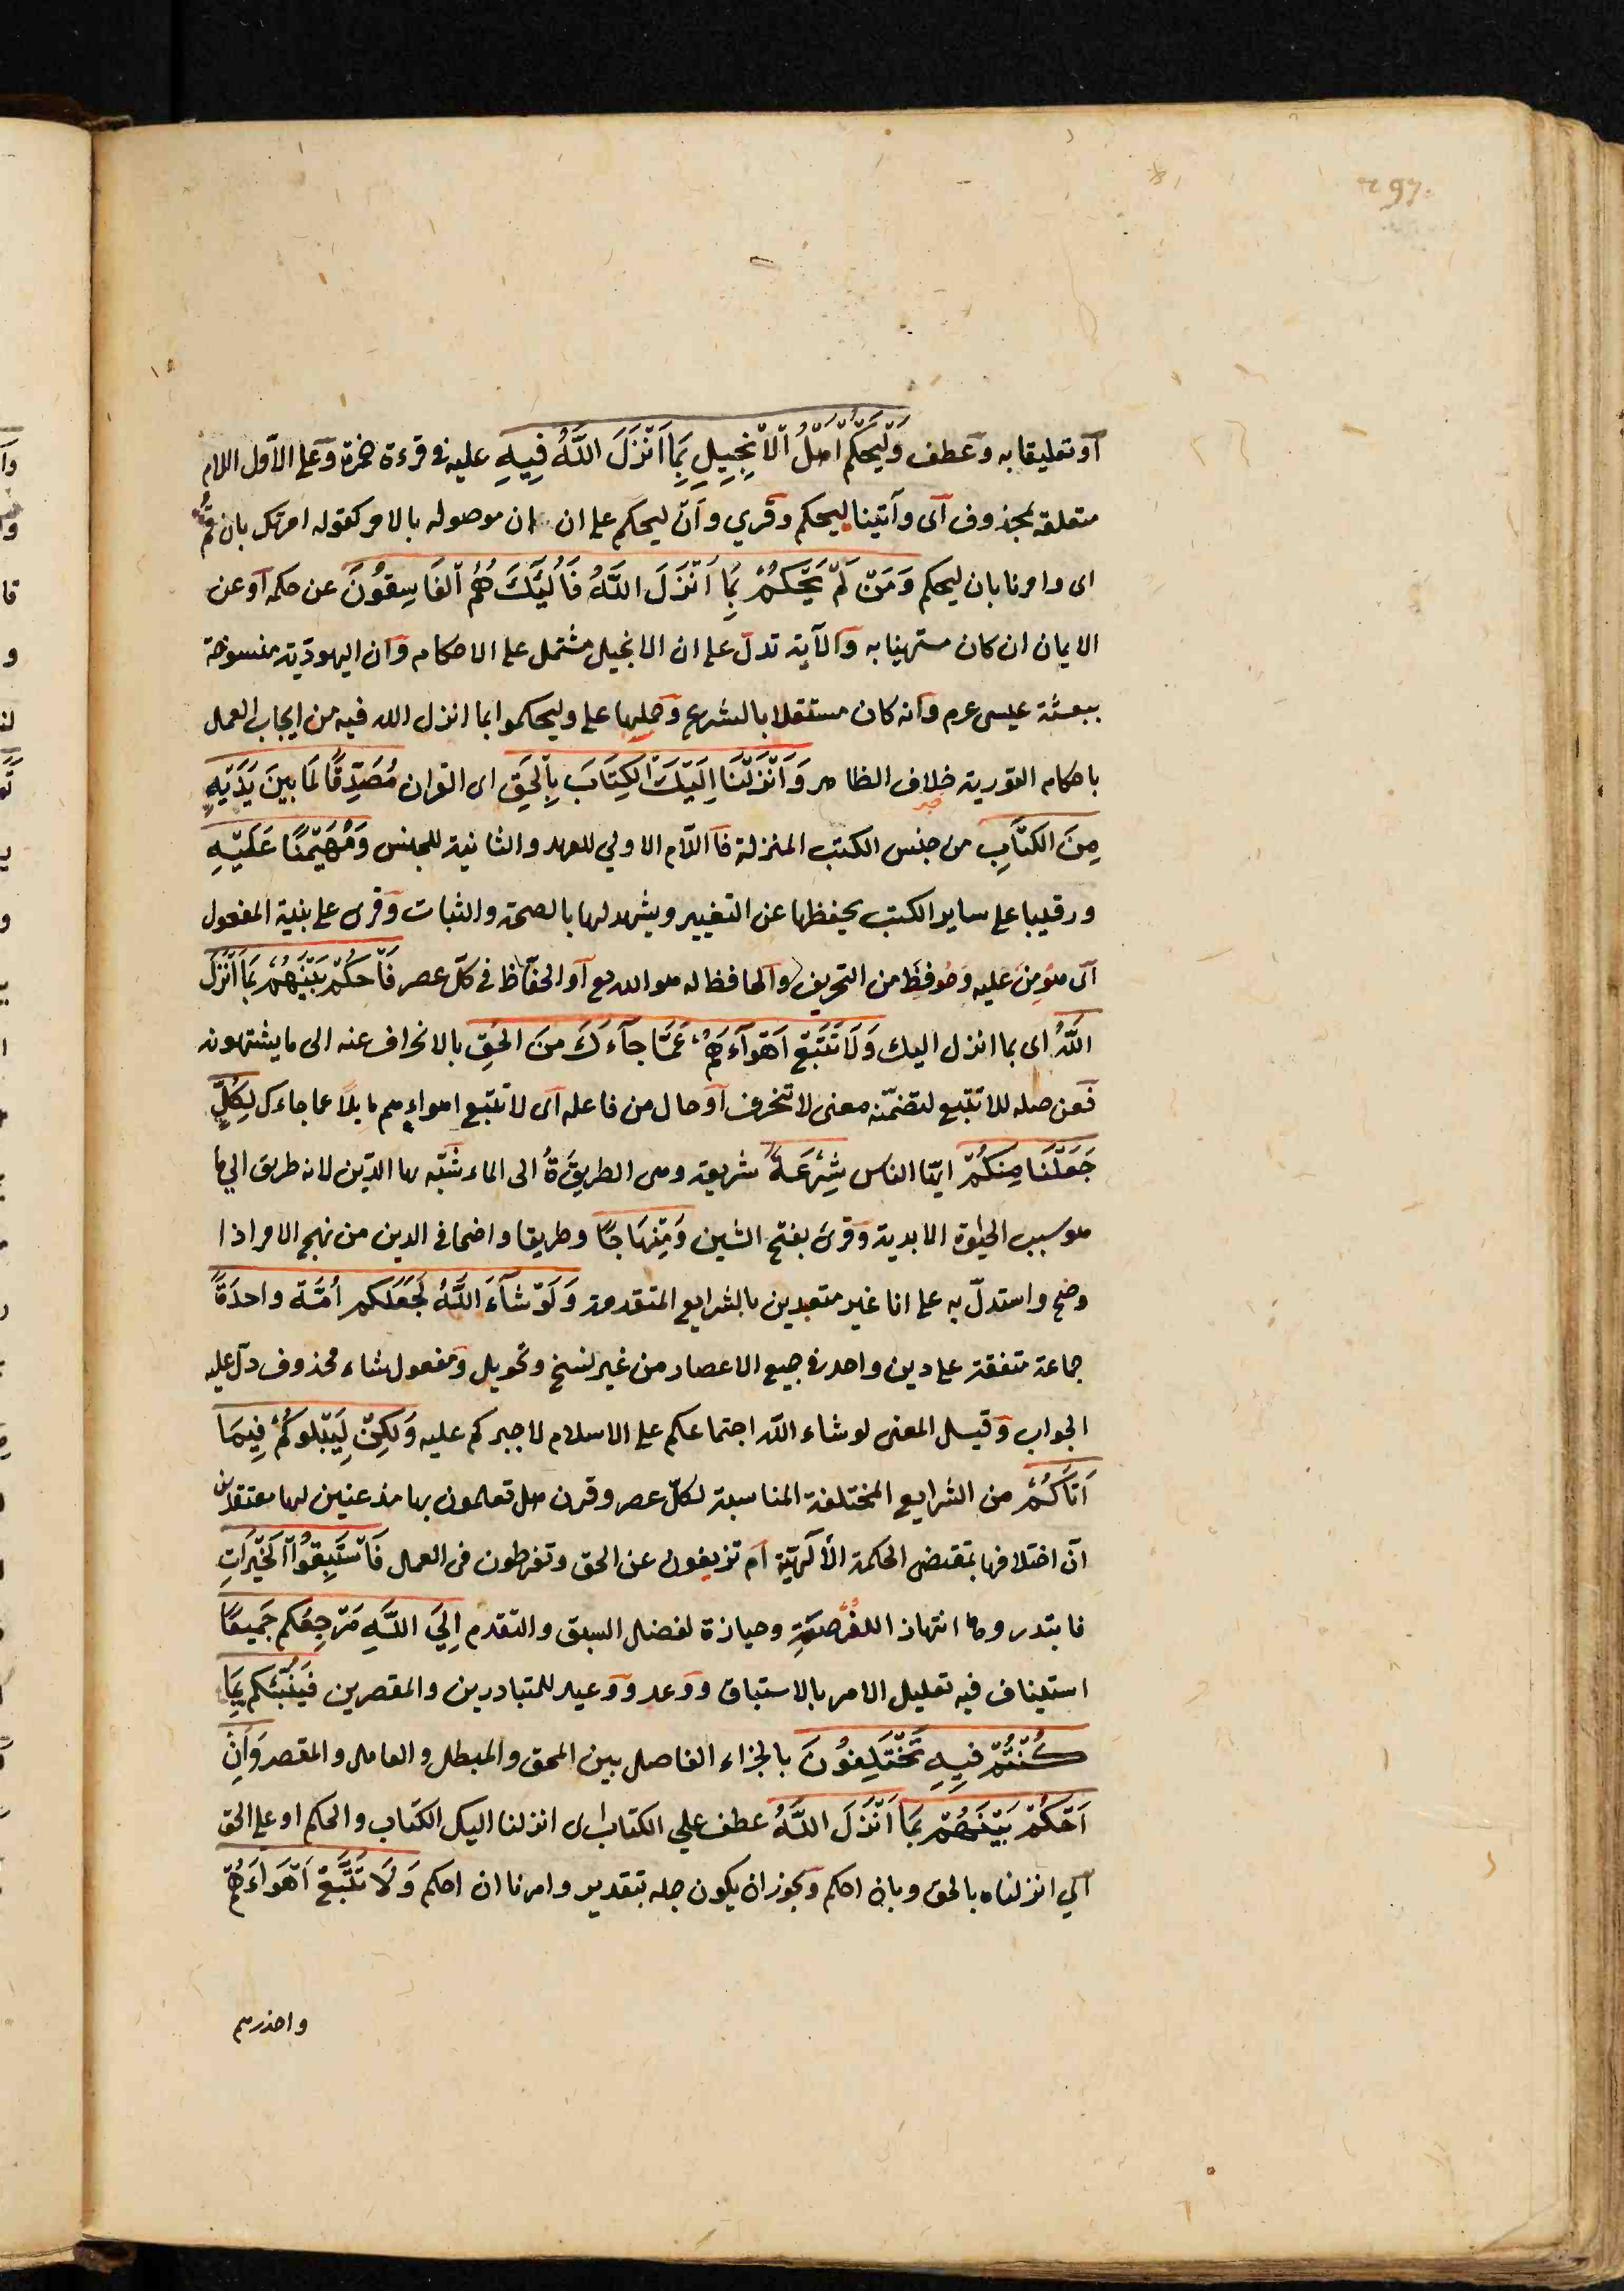 297.
أو تعليقا به وعطف وَلْيَحْكُمْ اَهْلُ الْاِنْجِيلِ بِمَا اَنْزَلَ اللَّهُ فِيهِ عليه في قرءة حمزة وعلى الأول اللام
متعلقة بمحذوف اى وآتينا ليحكم وقري وأن ليحكم على ان ان موصوله بالامر كقوله امرتك بان قم
اى وامرنا بان ليحكم وَمَنْ لَمْ يَحْكُمْ بِمَا اَنْزَلَ اللَّهُ فَاُلٰئِكَ هُمُ الْفَاسِقُونَ عن حكمه أو عن
الايمان ان كان مستهينا به والآية تدل على ان الانجيل مشتمل على الاحكام وان اليهودية منسوخة
ببعثة عيسى عرم وانه كان مستقلا بالشرع وحملها على وليحكموا بما انزل الله فيه من ايجاب العمل
باحكام التورية خلاف الظاهر وَاَنْزَلْنَا اِلَيْكَ الْكِتَابَ بِالْحَقِ اى القران مُصَدِّقًا لِمَا بَيْنَ يَدَيْهِ
مِنَ الكتَابِ من جنس الكتب المنزلة فاللام الاولي للعهد والثانية للجنس وَمُهَيْمِنًا عَلَيْهِ
ورقيبا على ساير الكتب يحفظها عن التغيير ويشهد لها بالصحة والثبات وقرى على بنية المفعول
اى هومِن عليه وحُوفِظَ من التحريف والحافظ له هو الله تع أو الحفاظ في كل عصر فَاحْكُمْ بَيْنَهُمْ بِمَا اَنْزَلَ
اللَّهُ اى بما انزل اليك وَلَا تَتَّبِعْ اَهْوَآءَهُمْ عَمَّا جآءَكَ مِنَ الْحَقِ بالانحراف عنه الى ما يشتهونه
فعن صله للاتتبع لتضمنه معنى لا تنحرف أو حال من فاعله اى لا تتبع اهواءهم مايلا عما جاءك لِكُلٍّ
جَعَلْنَا مِنْكُمْ ايها الناس شِرْعَةً شريعة وهى الطريقَةُ الى الماء شبّه بها الدين لانه طريق الي ما
هو سبب الحيوة الابدية وقرئ بفتح الشين وَمِنْهَاجًا وطريقا واضحا في الدين من نهج الامر اذا
وضح واستدل به على انا غير متعبدين بالشرايع المتقدمة وَلَوْ شَآءَ اللَّهُ لَجَعَلَكم اُمَّةً واحدَةً
جماعة متفقة على دين واحد في جميع الاعصار من غير نسخ وتحويل ومفعول شاء محذوف دل عليه
الجواب وقيل المعنى لو شاء الله اجتماعكم على الاسلام لاجبركم عليه وَلٰكِنْ لِيَبْلُوَكُمْ فِيمَا
اَتَاكُمْ من الشرايع المختلفة المناسبة لكل عصر وقرن هل تعلمون بها مذعنين لها معتقدين
ان اختلافها بمقتضى الحكمة الالهية أم تزيغون عن الحق وتفرطون في العمل فَاسْتَبِقُوا الْخَيْرَاتِ
فابتدروها انتهازا للفُرْصَةِ وحيازة لفضل السبق والتقدم اِلَى اللَّهِ مَرْجِعُكم جَمِيعًا
استيناف فيه تعليل الامر بالاستباق ووعد ووعيد للمتبادرين والمقصرين فَيُنَبِّئُكم بِمَا
كُنْتُمْ فِيهِ تَخْتَلِفُونَ بالجزاء الفاصل بين المحق والمبطل والعامل والمقصر وَاَنِ
اَحْكُمْ بَيْنَهُمْ بِمَا اَنْزَلَ اللَّهُ عطف على الكتاب اى انزلنا اليك الكتاب والحكم او على الحق
اي انزلناه بالحق وبان احكم ويجوز ان يكون جمله بتقدير وامرنا ان احكم وَلَا تَتَّبِعْ اَهْوَاءَهُمْ
واحذرهم